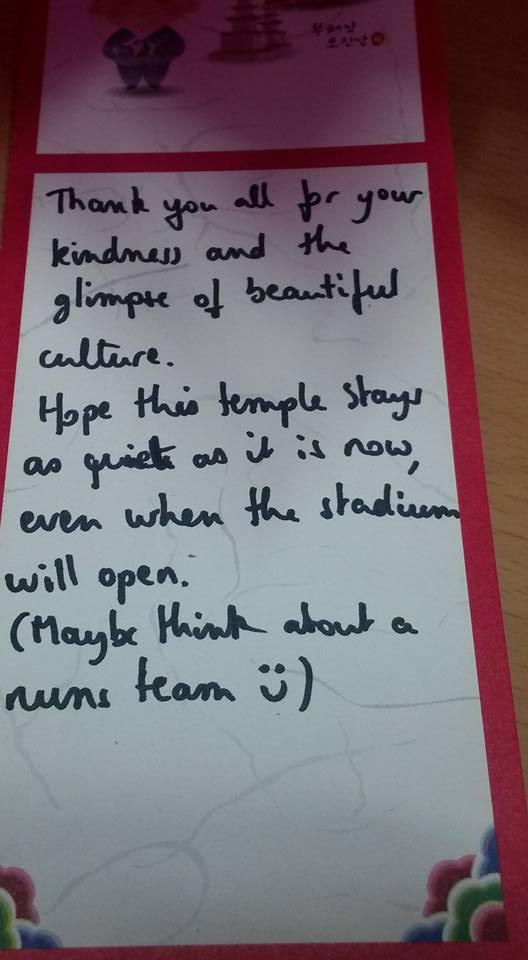 부처님
오신날
Thank you all for your
kindness and the
glimpse of beautiful
culture.
Hope this temple stays
as quiet as it is now,
even when the stadium
will open.
(Maybe think about a
nuns team ü)